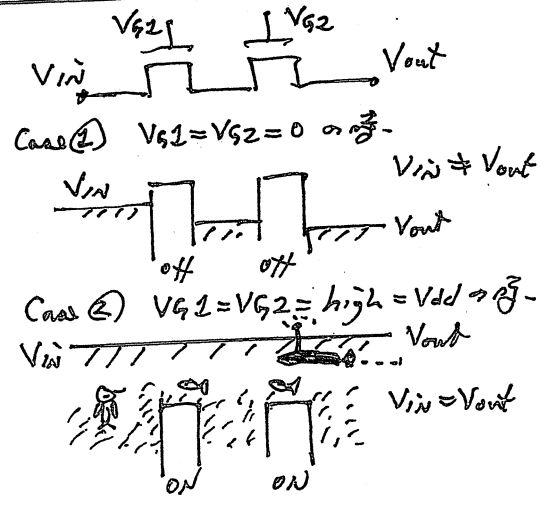 VG1 VG2
VIN Vout
Case ① VG1=VG2=0 の時-
VIN ≠ Vout
VIN
Vout
off off
Case ② VG1=VG2=high=Vdd の時-
VIN Vout
VIN=Vout
ON ON